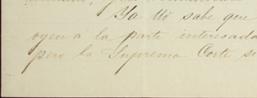 Ya Ud sabe que
oyen á la parte interesada
pero la Suprema Corte se